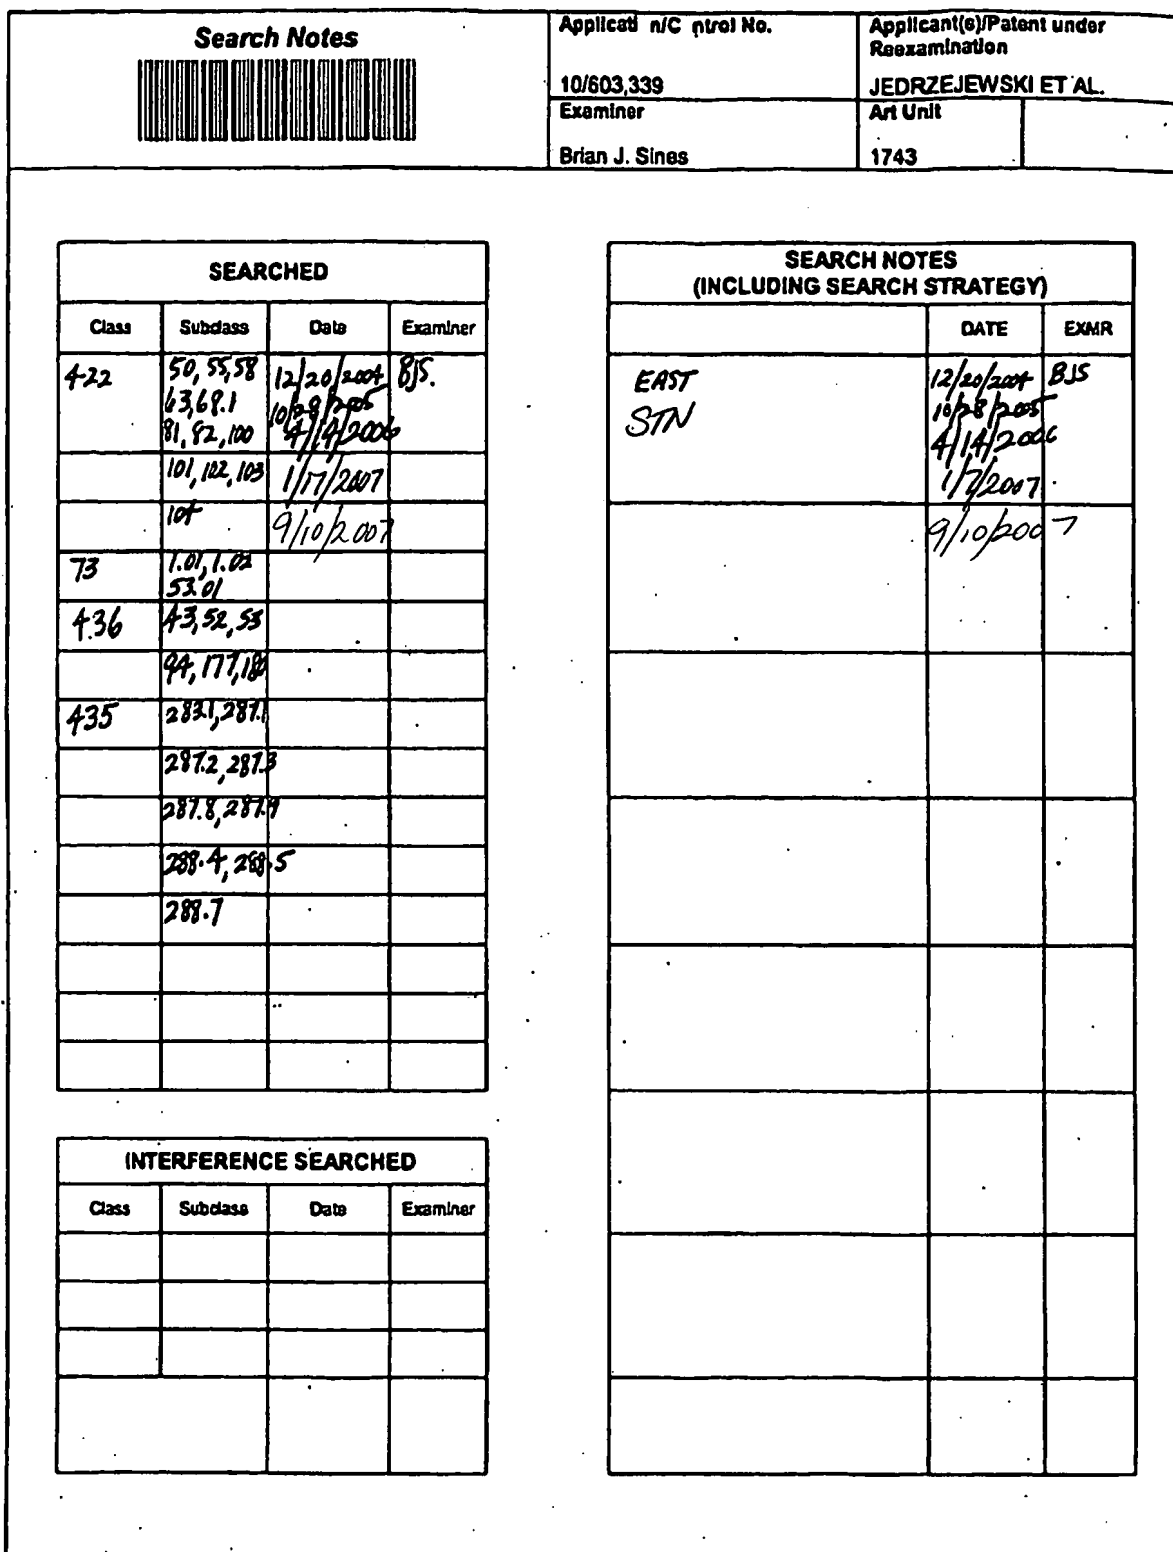 Search Notes
Applicati n/C ntrol No.
10/603,339
Applicant(s)/Patent under
Reexamination
JEDRZEJEWSKI ET AL.
Examiner
Brian J. Sines
Art Unit
1743
SEARCHED
Class Subclass Date Examiner
422 50, 55, 58 12/20/2004 BJS.
63, 68.1 10/28/2005
81, 82, 100 4/14/2006
101, 102, 103 1/17/2007
104 9/10/2007
73 1.01, 1.02
53.01
436 43, 52, 53
94, 177, 180
435 283.1, 287.1
287.2, 287.3
287.8, 287.9
288.4, 288.5
288.7
INTERFERENCE SEARCHED
Class Subclass Date Examiner
SEARCH NOTES
(INCLUDING SEARCH STRATEGY)
DATE EXMR
EAST 12/20/2004 BJS
STN 10/28/2005
4/14/2006
1/7/2007
9/10/2007